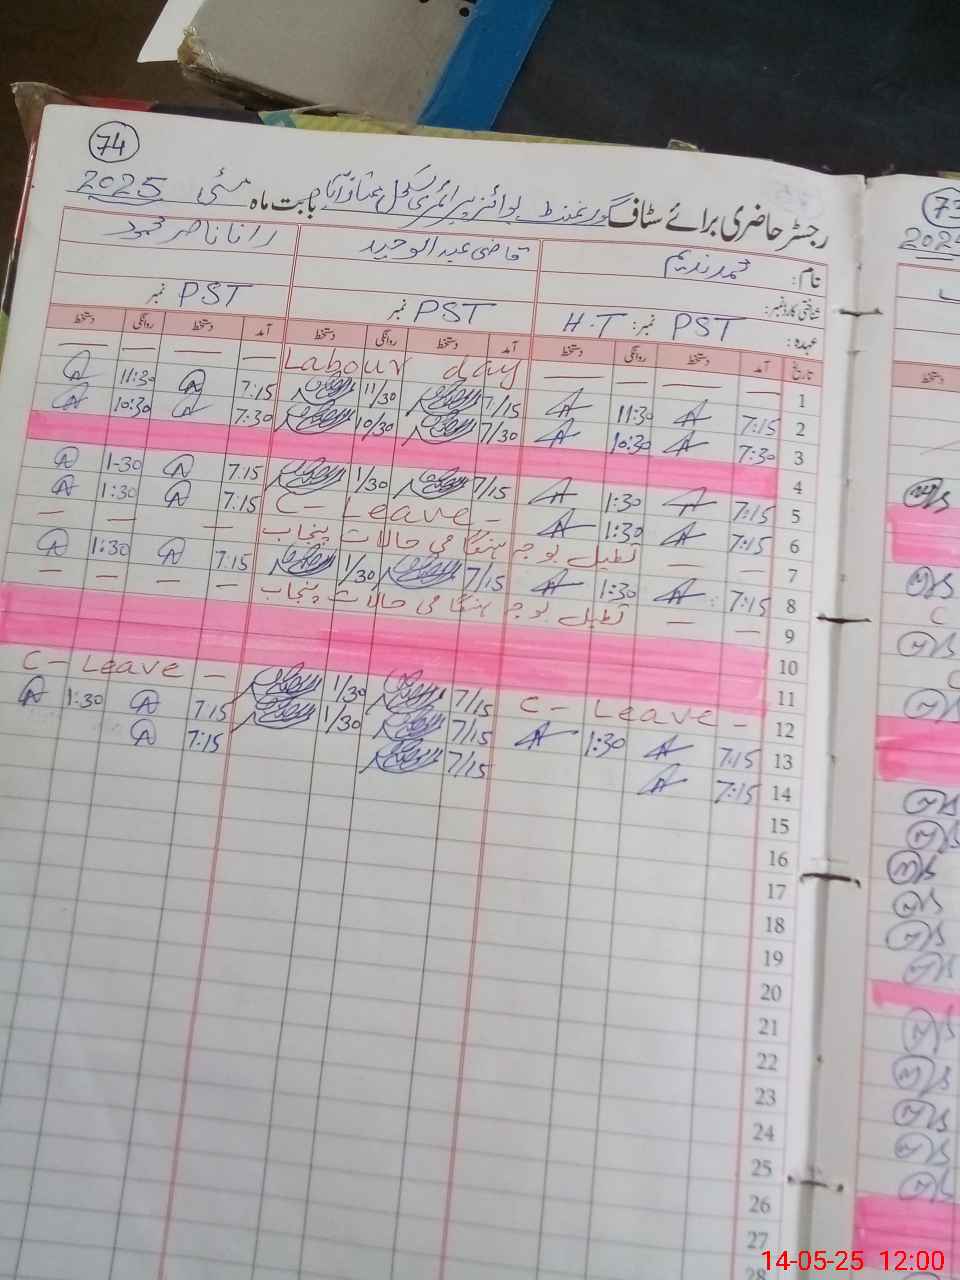 74
رجسٹر حاضری برائے سٹاف گورنمنٹ بوائز پرائمری سکول ممتاز آباد بابت ماہ مئی 2025
نام: محمد ندیم قاضی عبدالوحید رانا ناصر محمود
شناختی کارڈ نمبر:
عہدہ: PST نمبر: H.T PST نمبر PST نمبر
تاریخ آمد دستخط روانگی دستخط آمد دستخط روانگی دستخط آمد دستخط روانگی دستخط
1 — — — — Labour day — — — —
2 7:15 11:30 7/15 11/30 7:15 11:30
3 7:30 10:30 7/30 10/30 7:30 10:30
4
5 7:15 1:30 7/15 1/30 7:15 1-30
6 7:15 1:30 C - Leave - 7:15 1:30
7 — — تعطیل بوجہ ہنگامی حالات پنجاب — — —
8 7:15 1:30 7/15 1/30 7:15 1:30
9 — — تعطیل بوجہ ہنگامی حالات پنجاب — — — —
10
11
12 C - Leave - 7/15 1/30 C - Leave -
13 7:15 1:30 7/15 1/30 7:15 1:30
14 7:15 7/15 7:15
15
16
17
18
19
20
21
22
23
24
25
26
27
28
73
دستخط
14-05-25 12:00